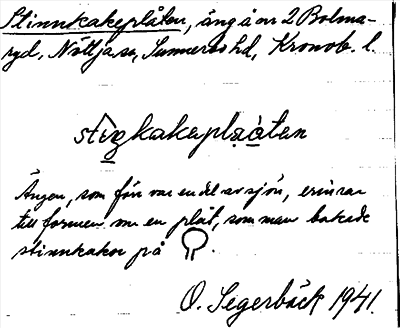 Stinnkakeplåten, äng å nr 2 Bolma-
ryd, Nöttja sn, Sunnerbo hd, Kronob. l.
stiŋkakeplaàten
Ängen, som förr var en del av sjön, erinrar
till formen om en plåt, som man bakade
stinnkakor på
O. Segerbäck 1941.